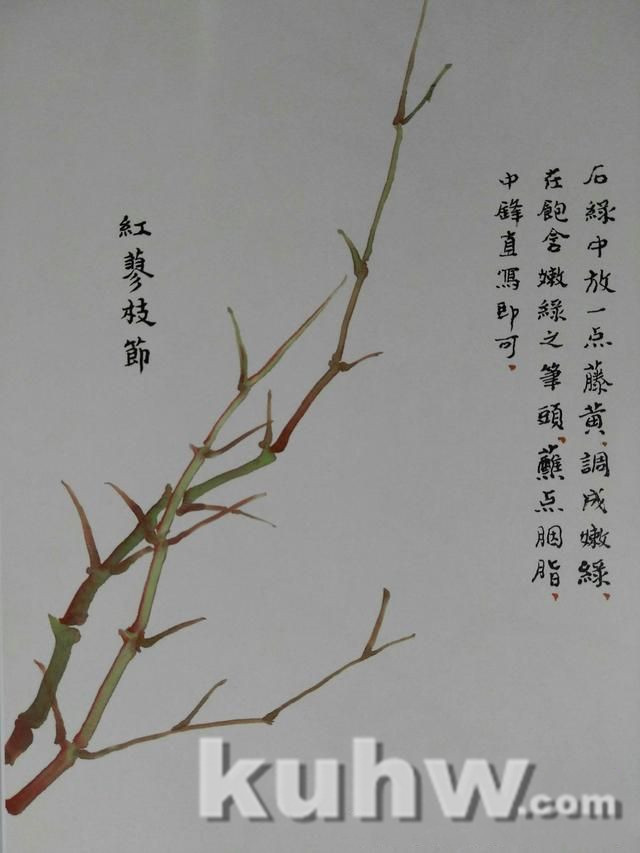 石綠中放一点藤黄、調成嫩綠、
在飽含嫩綠之筆頭、蘸点胭脂、
中鋒直寫即可、
紅蓼枝節
kuhw.com